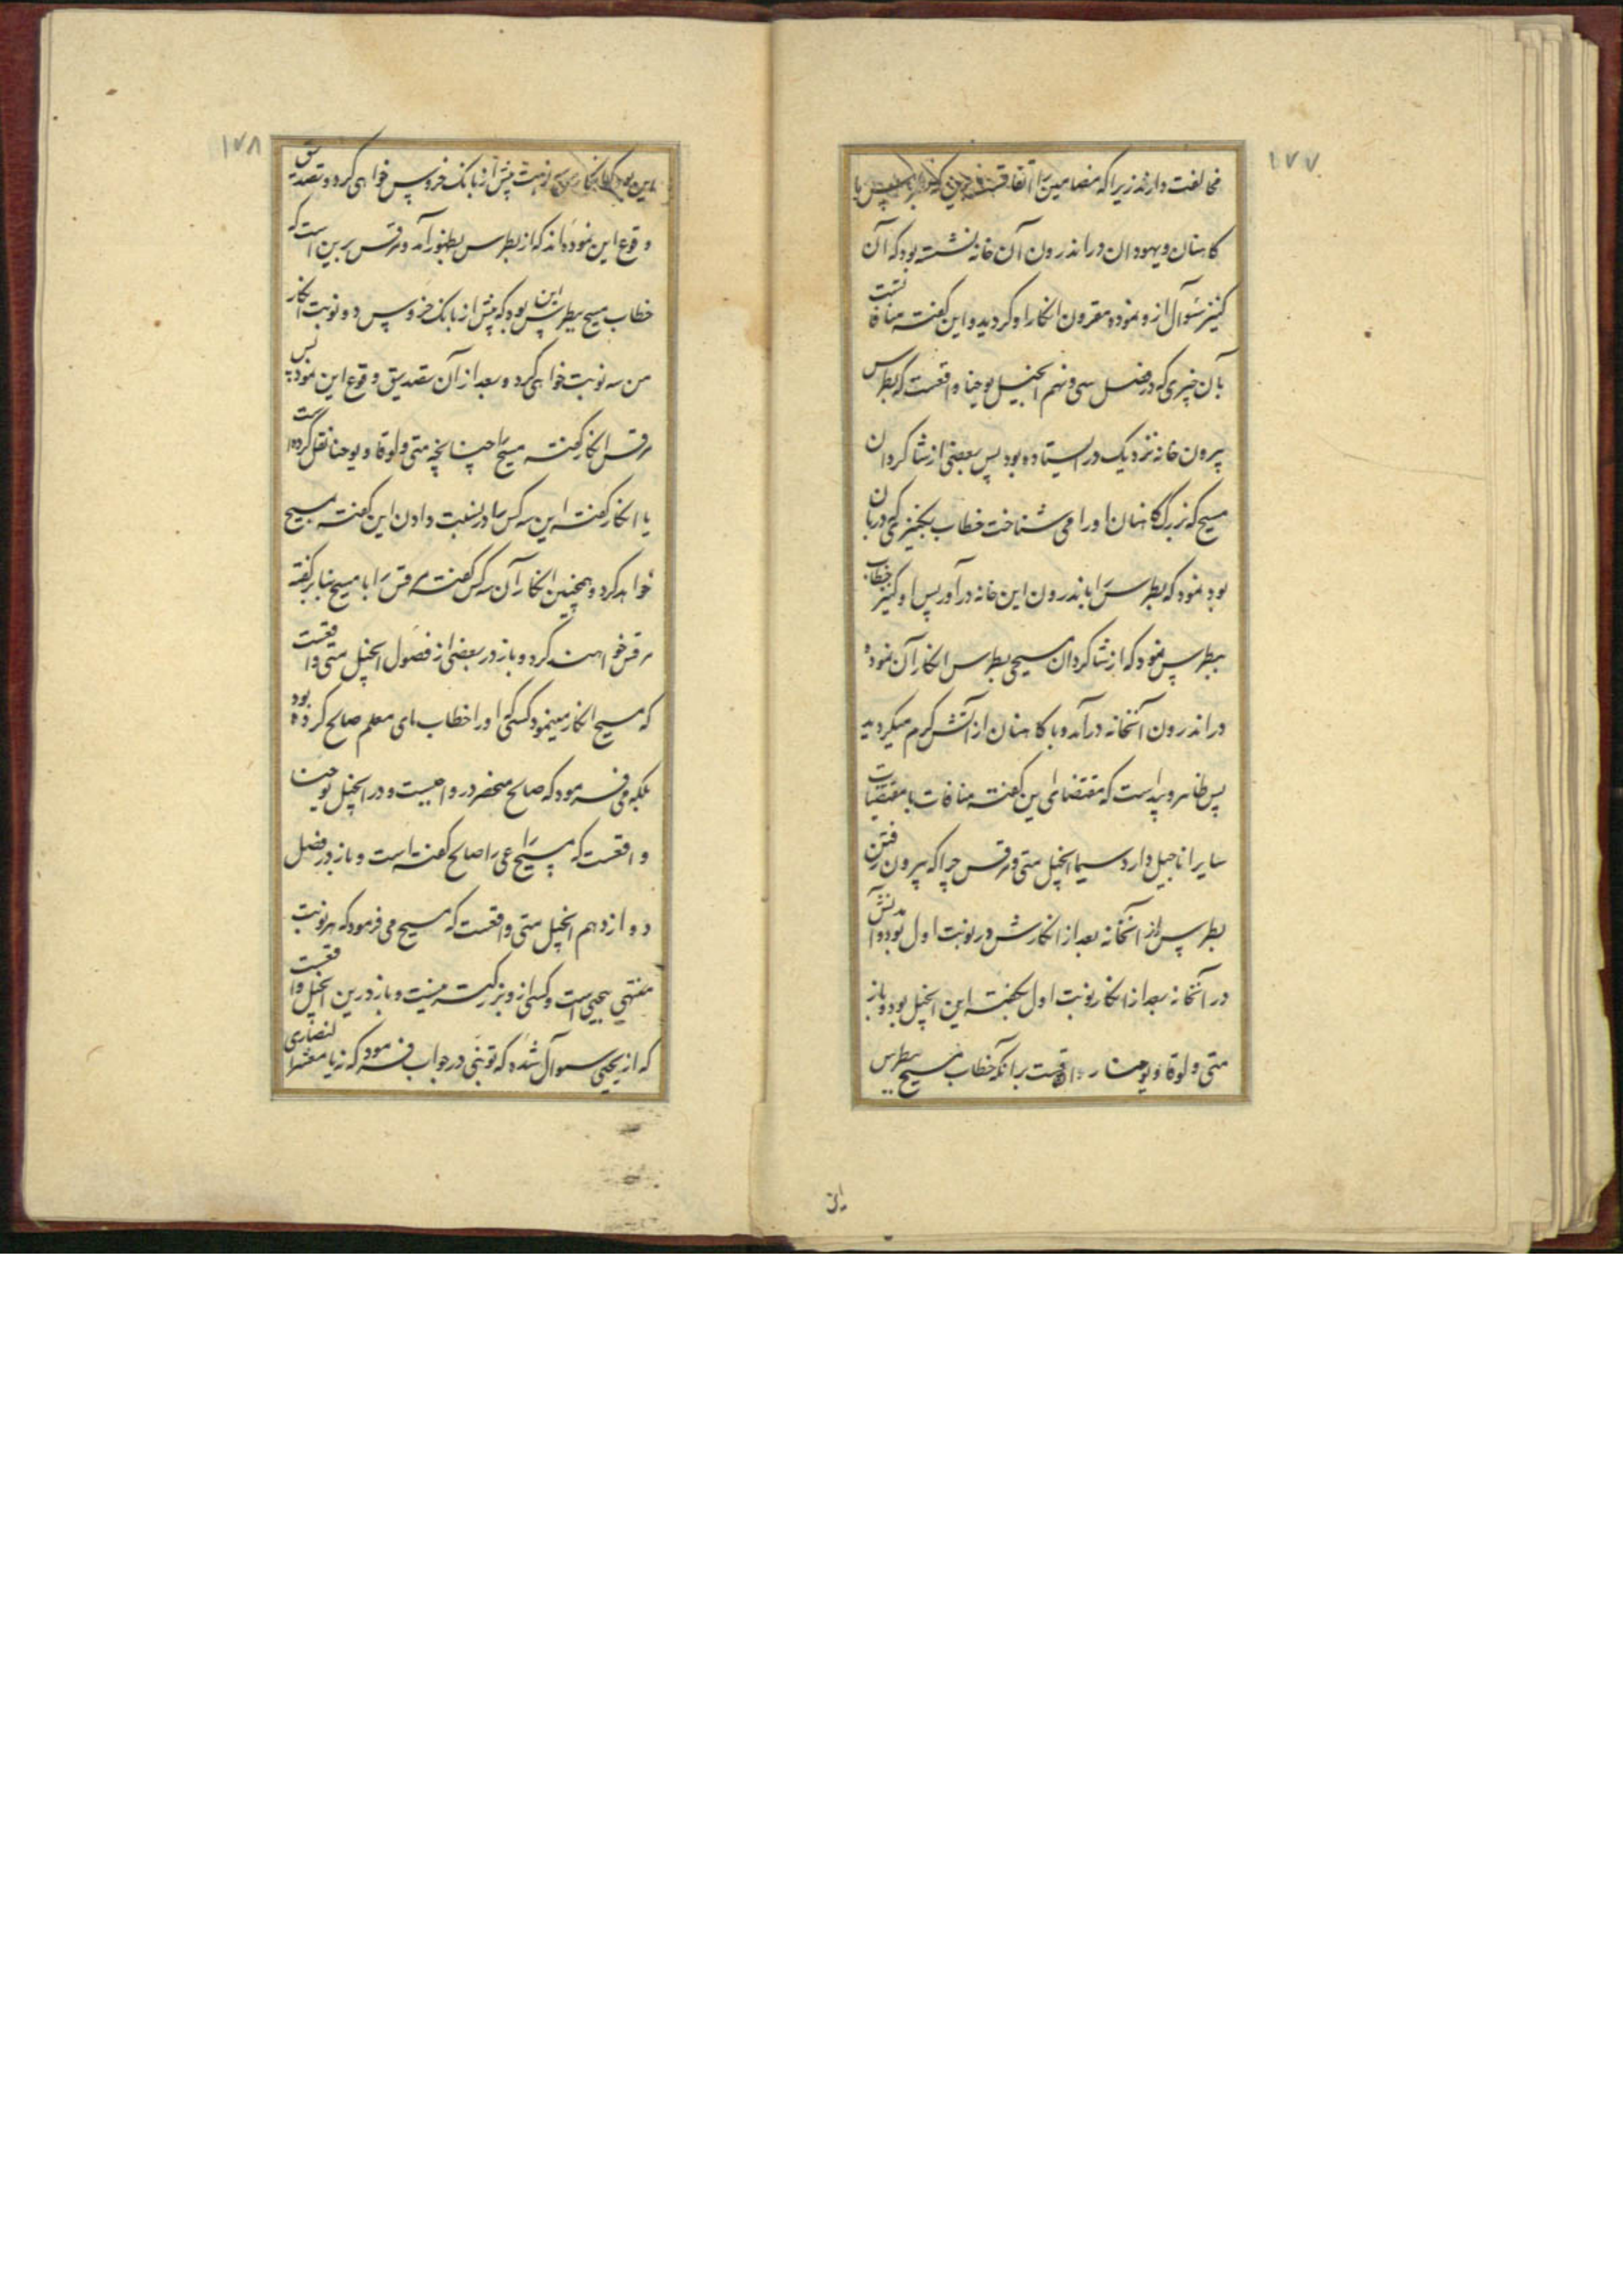 ۱۷۷
مخالفت دارند زیرا که مضامین را اتفاقست
کاهنان و یهودان در اندرون آن خانه نشسته بود که آن
کنیز سئوال از و نموده مقرون انکار او کردید و این گفته منافاتست
بآن چیزی که در فصل سی و نهم انجیل یوحنا واقعست که بطرس
بیرون خانه نزدیک در ایستاده بود پس بعضی از شاکردان
مسیح که بزرگ کاهنان او را می شناخت خطاب بکنیزی که دربان
بود نمود که بطرس را باندرون این خانه درآور پس او کنیز خطاب
ببطرس نمود که از شاکردان مسیحی بطرس انکار آن نموده
در اندرون آنخانه درآمد و با کاهنان از آتش گرم میکردید
پس ظاهر و پیداست که مقتضای این گفته منافات با مقتضیات
سایر اناجیل دارد سیما انجیل متی و مرقس چرا که بیرون رفتن
بطرس از آنخانه بعد از انکارش در نوبت اول بود و آمدنش
در آنخانه بعد از انکار نوبت اول بگفته این انجیل بود و باز
متی و لوقا و یوحنا را واقعست بر آنکه خطاب مسیح ببطرس
این
۱۷۸
این بود که انکار من سه نوبت پیش از بانک خروس خواهی کرد و تصدیق
وقوع این نموده‌اند که از بطرس بظهور آمد و مرقس برین است که
خطاب مسیح بطرس این بود که پیش از بانک خروس دو نوبت انکار
من سه نوبت خواهی کرد و بعد از آن تصدیق وقوع این نموده پس
مرقس انکار گفته مسیح را چنانچه متی و لوقا و یوحنا نقل کرده است
یا انکار گفته این سه کس را در نسبت دادن این گفته بمسیح
خواهد کرد و همچنین انکار آن سه کس گفته مرقس را با مسیح بنا بر گفته
مرقس خواهند کرد و باز در بعضی از فصول انجیل متی واقعست
که مسیح انکار مینمود کسی را که او را خطاب بای معلم صالح کرده بود
بلکه می فرمود که صالح منحصر در واجبست و در انجیل یوحنا
واقعست که مسیح راعی را صالح گفته است و باز در فصل
دوازدهم انجیل متی واقعست که مسیح می فرمود که هر نوبت
منتهی بیحیی است و کسی از و بزرگتر نیست و باز درین انجیل واقعست
که از یحیی سوآل شده که تو نبی در جواب فرمود که نه یا معشر النصاری